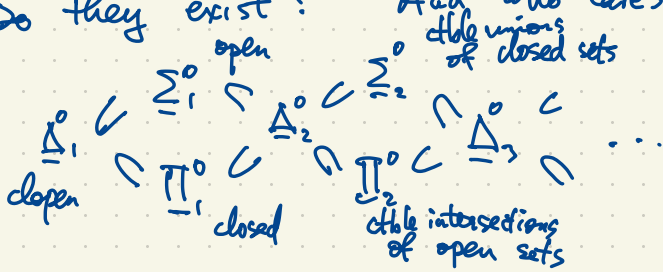 Do they exist? And who cares
open
ctble unions
of closed sets
Σ⁰₁ ⊂ Δ⁰₂ ⊂ Σ⁰₂ ⊂ Δ⁰₃ ⊂ ...
Δ⁰₁ ⊂ Π⁰₁ ⊂ Π⁰₂ ⊂
clopen
closed
ctble intersections
of open sets